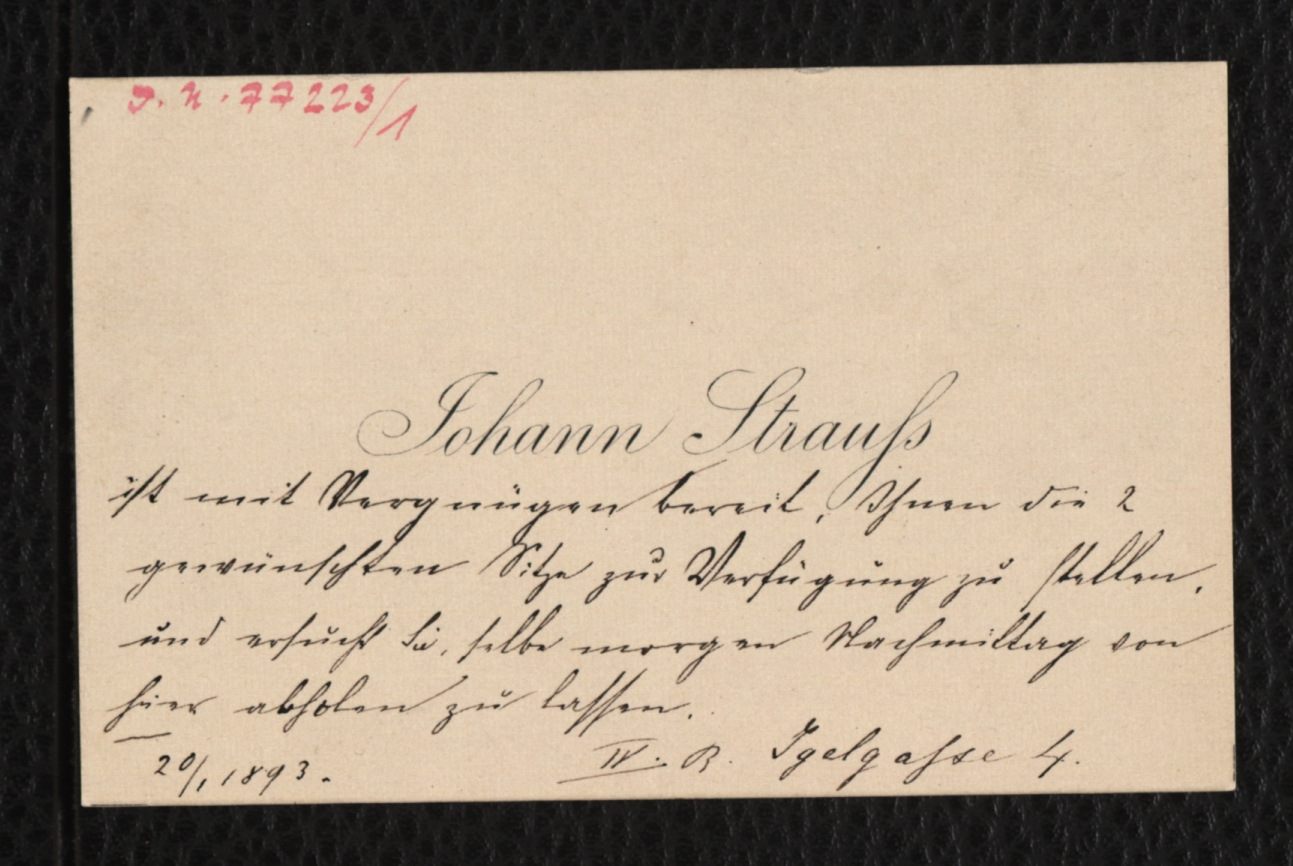 J. N. 77223/1
Johann Strauſs
ist mit Vergnügen bereit, Ihnen die 2
gewünschten Sitze zur Verfügung zu stellen,
und ersucht Sie, selbe morgen Nachmittag von
hier abholen zu lassen.
20/1 1893. IV. B. Igelgaſse 4.